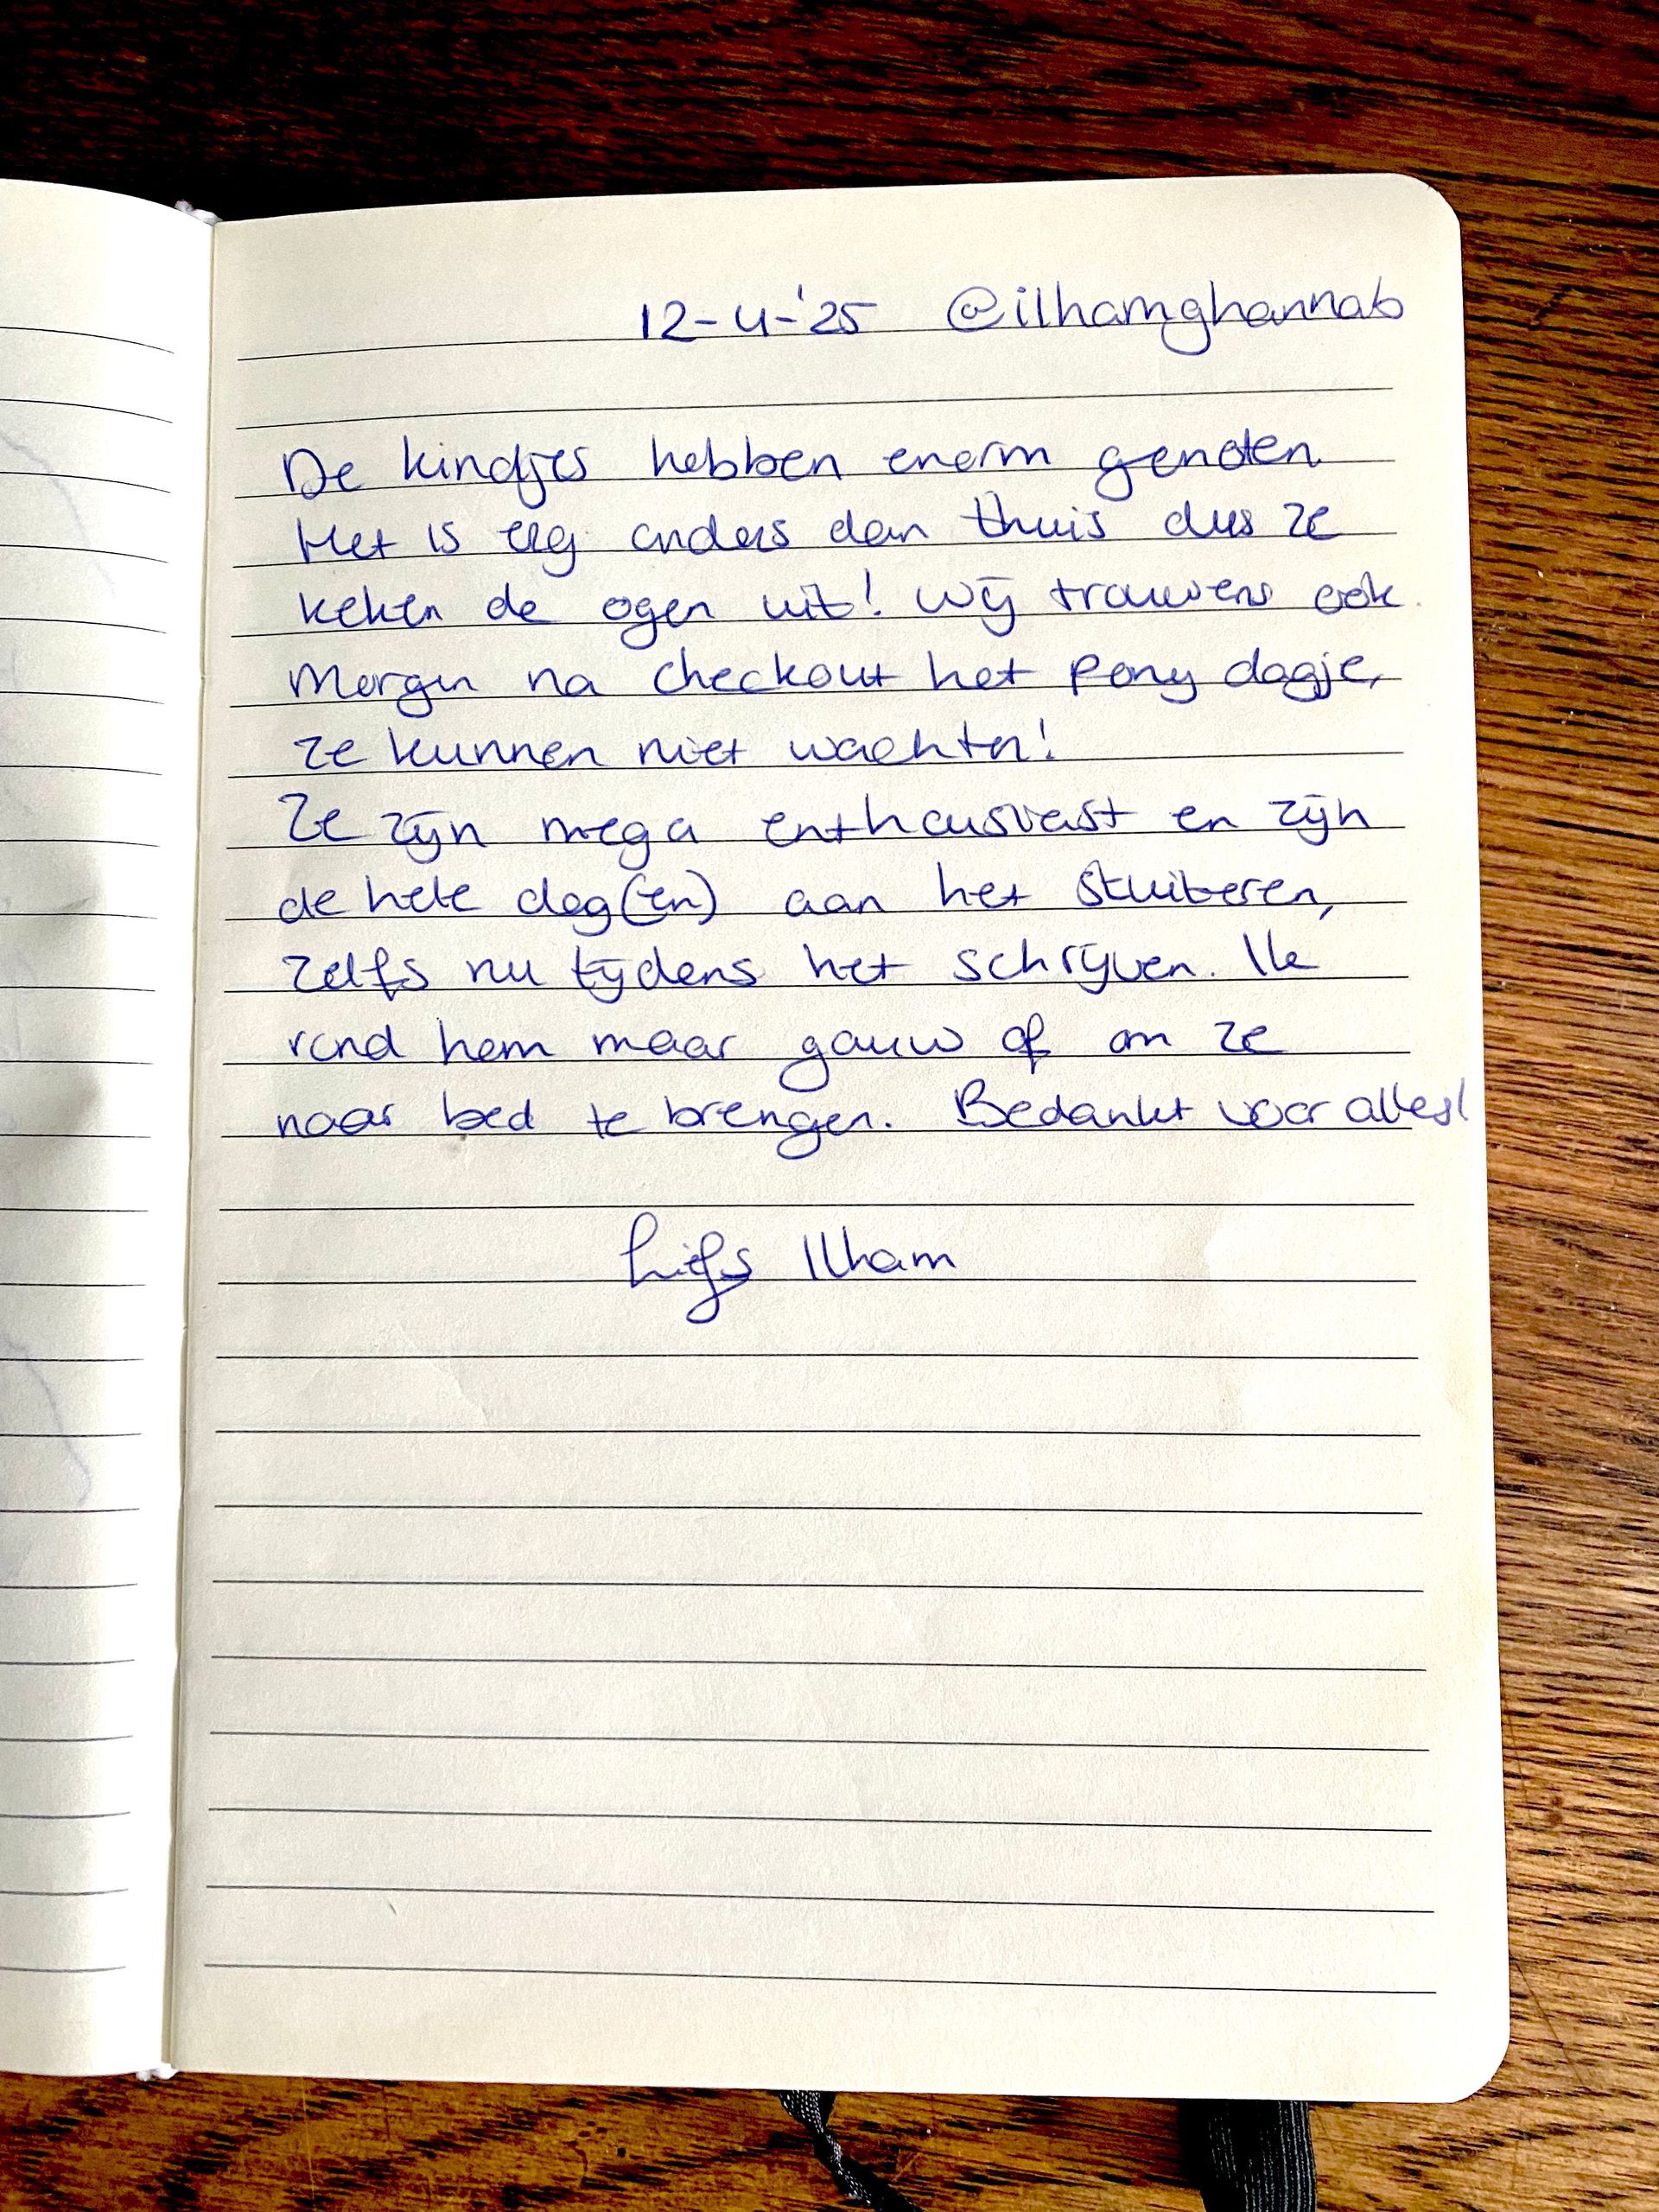 12-4-'25 @ilhamghannab
De kindjes hebben enorm genoten
Het is erg anders dan thuis dus ze
keken de ogen uit! Wij trouwens ook.
Morgen na checkout het pony dagje,
ze kunnen niet wachten!
Ze zijn mega enthousiast en zijn
de hele dag(en) aan het stuiteren,
zelfs nu tijdens het schrijven. Ik
rond hem maar gauw af om ze
naar bed te brengen. Bedankt voor alles!
Liefs Ilham